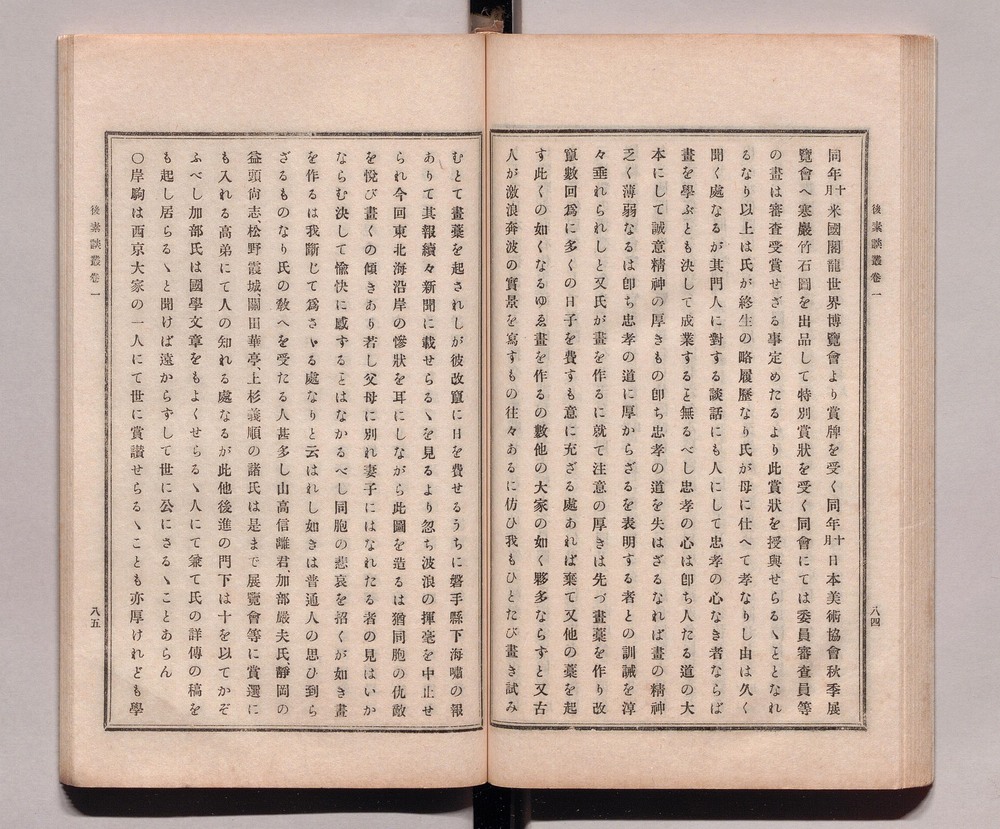 後素談叢卷一
八四
同年十月米國閣龍世界博覽會より賞牌を受く同年十月日本美術協會秋季展
覽會へ寒巖竹石圖を出品して特別賞狀を受く同會にては委員審査員等
の畫は審査受賞せざる事定めたるより此賞狀を授與せらるヽこととなれ
るなり以上は氏が終生の略履歷なり氏が母に仕へて孝なりし由は久く
聞く處なるが其門人に對する談話にも人にして忠孝の心なき者ならば
畫を學ぶとも決して成業すると無るべし忠孝の心は卽ち人たる道の大
本にして誠意精神の厚きもの卽ち忠孝の道を失はざるなれば畫の精神
乏く薄弱なるは卽ち忠孝の道に厚からざるを表明する者との訓誡を淳
々垂れられしと又氏が畫を作るに就て注意の厚きは先づ畫藁を作り改
竄數回爲に多くの日子を費すも意に充ざる處あれば棄て又他の藁を起
す此くの如くなるゆゑ畫を作るの數他の大家の如く夥多ならすと又古
人が激浪奔波の實景を寫すもの往々あるに仿ひ我もひとたび畫き試み
むとて畫藁を起されしが彼改竄に日を費せるうちに磐手縣下海嘯の報
ありて其報續々新聞に載せらるヽを見るより忽ち波浪の揮毫を中止せ
られ今回東北海沿岸の慘狀を耳にしながら此圖を造るは猶同胞の仇敵
を悅び畫くの傾きあり若し父母に別れ妻子にはなれたる者の見はいか
ならむ決して愉快に感することはなかるべし同胞の悲哀を招くが如き畫
を作るは我斷じて爲さヾる處なりと云はれし如きは普通人の思ひ到ら
ざるものなり氏の敎へを受たる人甚多し山高信離君、加部嚴夫氏、靜岡の
益頭尙志、松野霞城、關田華亭、上杉義順の諸氏は是まで展覽會等に賞選に
も入れる高弟にて人の知れる處なるが此他後進の門下は十を以てかぞ
ふべし加部氏は國學文章をもよくせらるヽ人にて兼て氏の詳傳の稿を
も起し居らるヽと聞けば遠からすして世に公にさるヽことあらん
〇岸駒は西京大家の一人にて世に賞讃せらるヽことも亦厚けれども學
後素談叢卷一
八五